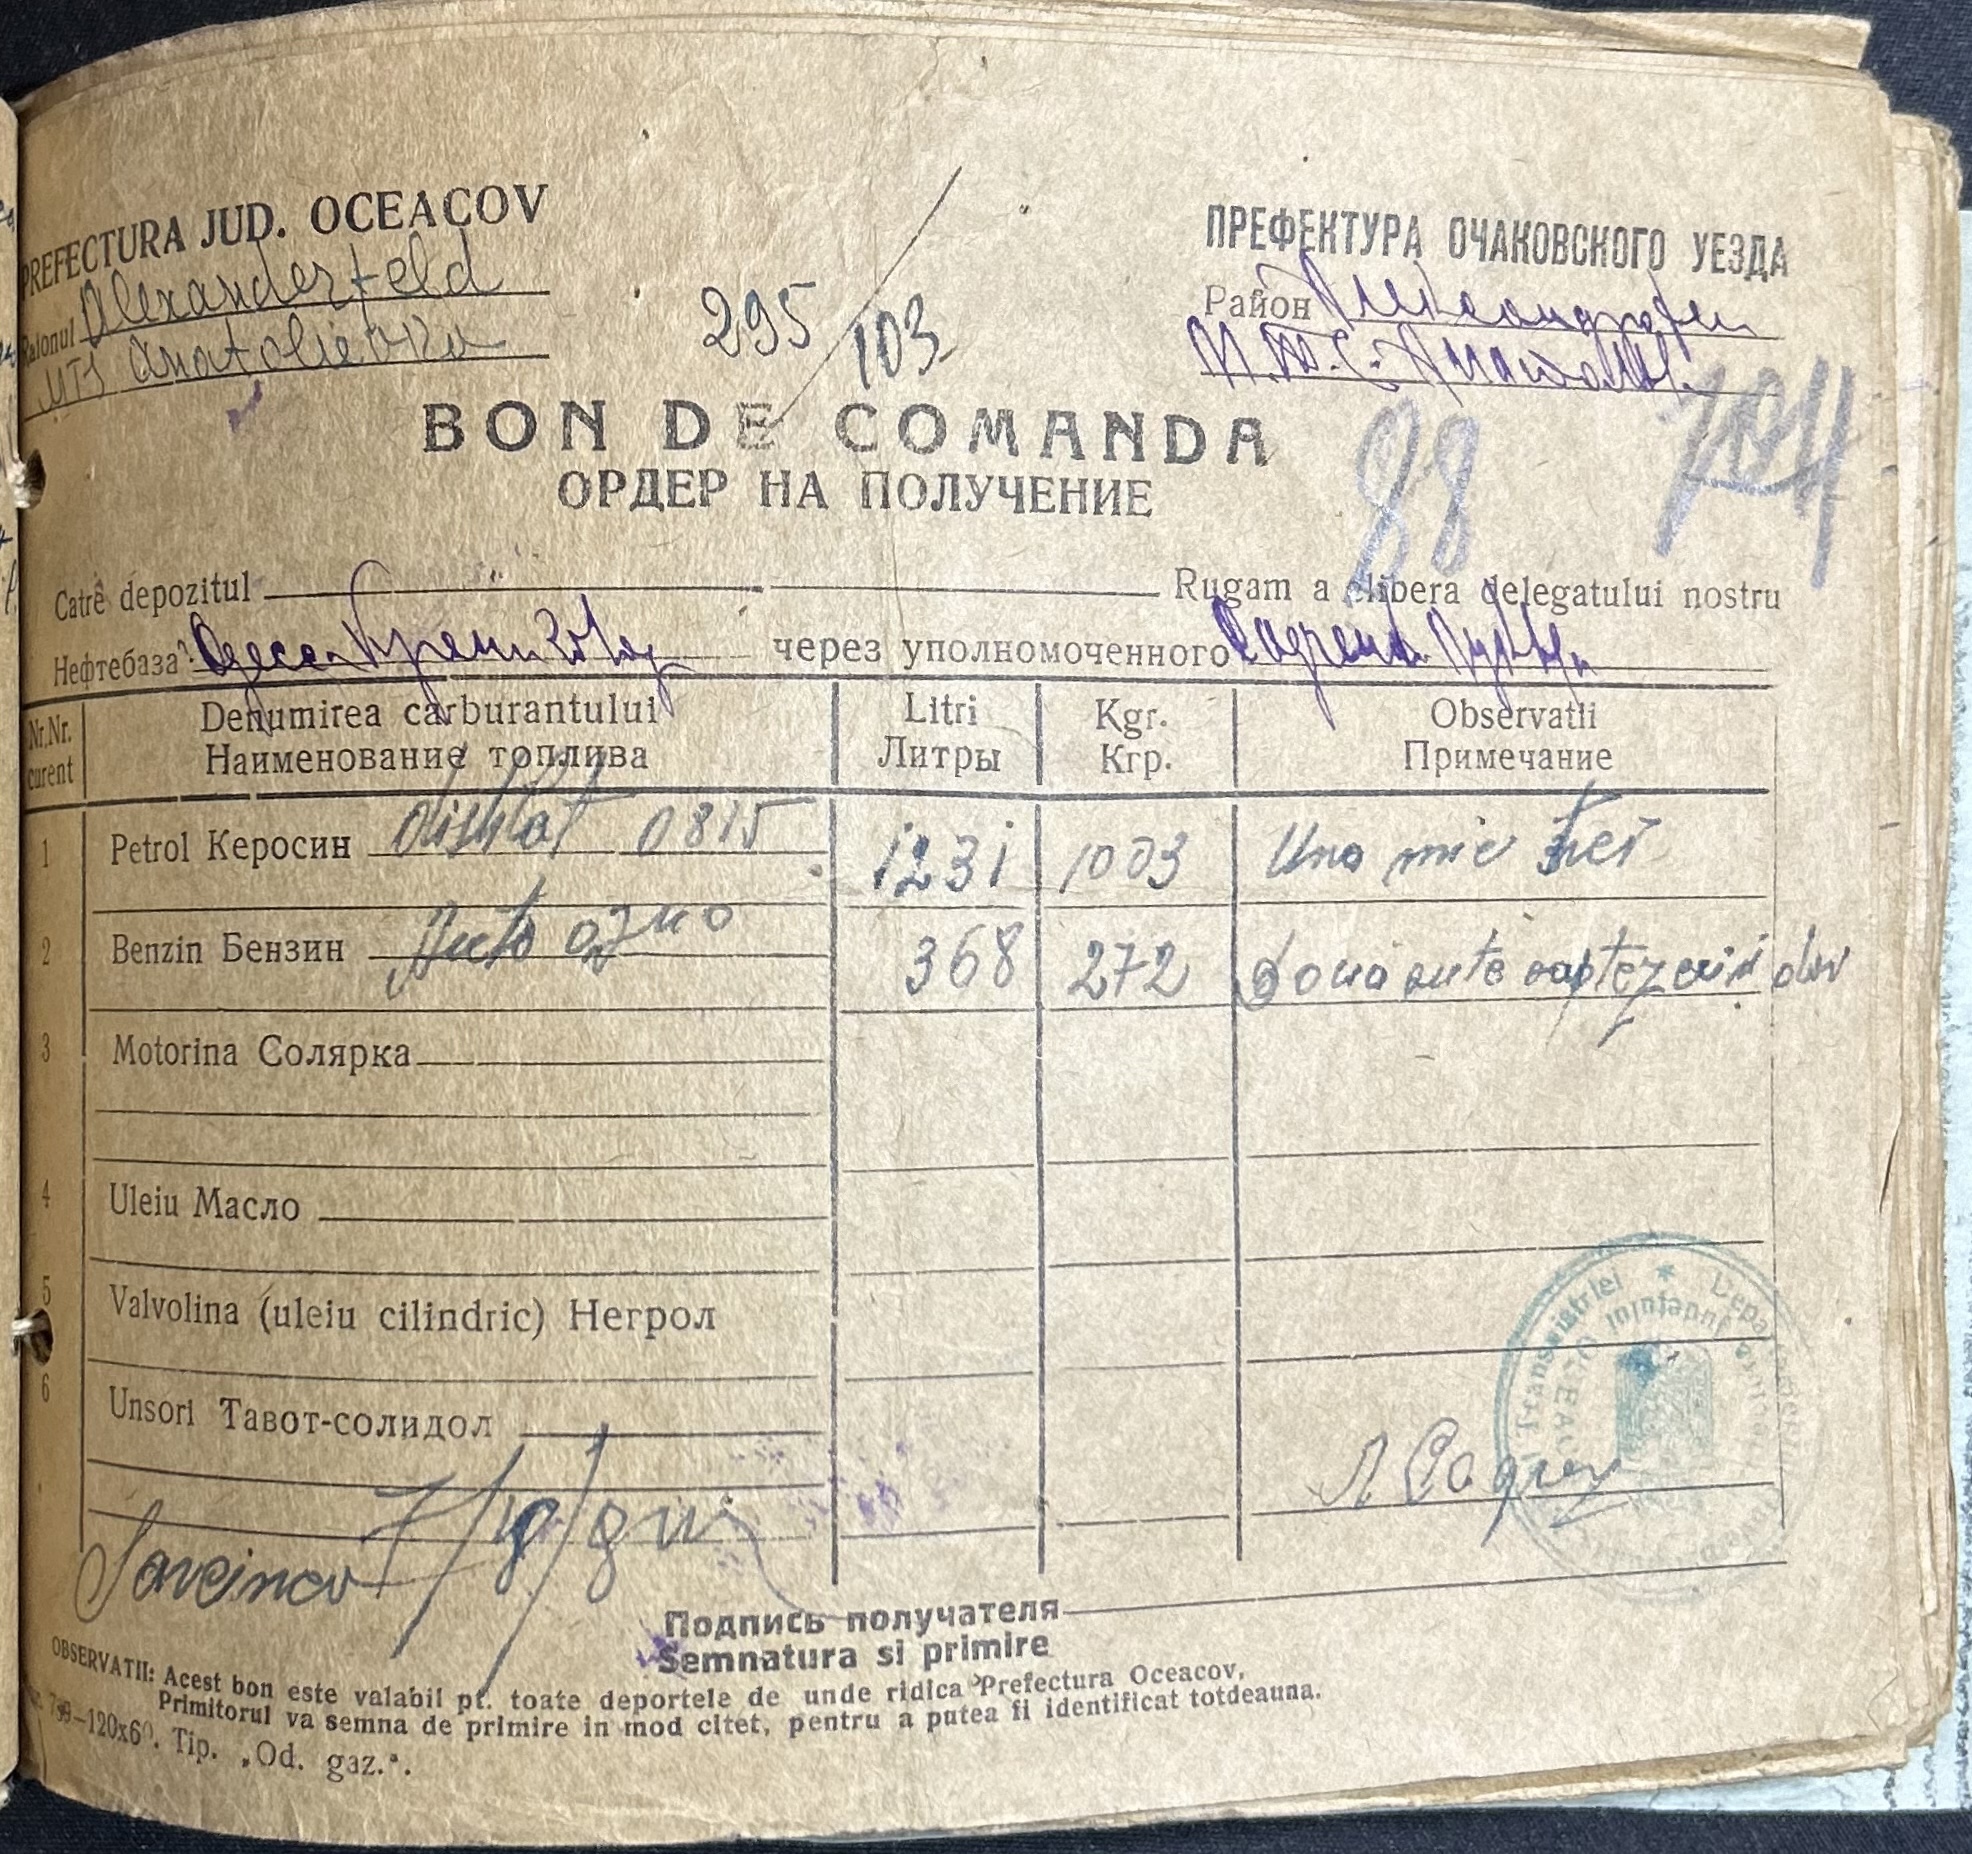 PREFECTURA JUD. OCEACOV
Raionul Alexanderfeld
MTS Anatolievka
295/103
ПРЕФЕКТУРА ОЧАКОВСКОГО УЕЗДА
Район
М.Т.С.
BON DE COMANDA
ОРДЕР НА ПОЛУЧЕНИЕ
88 704
Catre depozitul Rugam a elibera delegatului nostru
Нефтебаза через уполномоченного
Nr.Nr. curent
Denumirea carburantului
Наименование топлива
Litri
Литры
Kgr.
Кгр.
Observatii
Примечание
1 Petrol Керосин distilat 0815 1231 1003 Una mie trei
2 Benzin Бензин Auto 368 272 Doua sute saptezeci doi
3 Motorina Солярка
4 Uleiu Масло
5 Valvolina (uleiu cilindric) Негрол
6 Unsori Тавот-солидол
Подпись получателя
Semnatura si primire
OBSERVATII: Acest bon este valabil pt. toate deportele de unde ridica Prefectura Oceacov,
Primitorul va semna de primire in mod citet, pentru a putea fi identificat totdeauna.
–120x60. Tip. „Od. gaz.“.
Transnistriei * Depa
Judetului OCEACOV